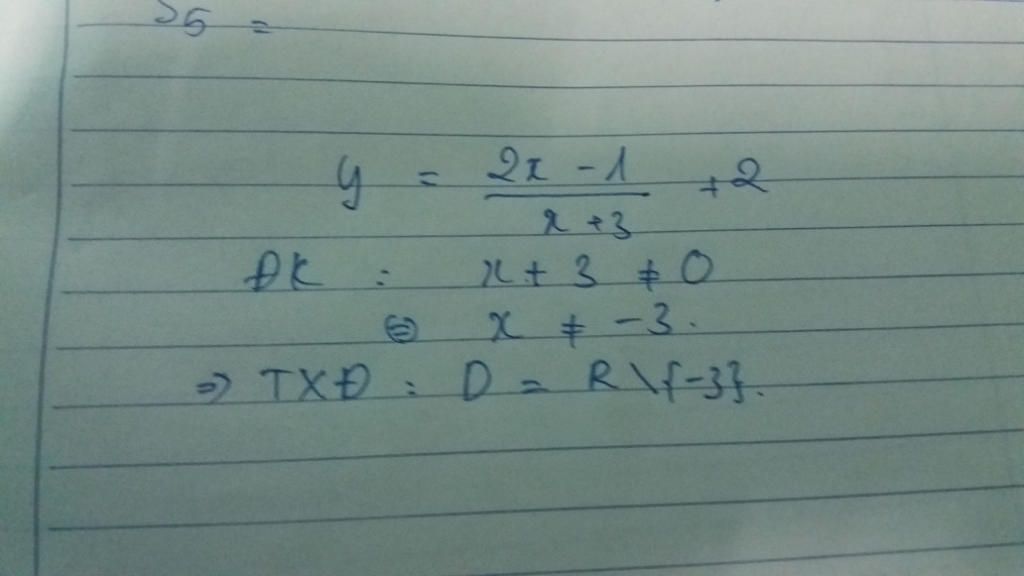 S5 =
y = \frac{2x - 1}{x + 3} + 2
ĐK : x + 3 ≠ 0
⇔ x ≠ -3.
⇒ TXĐ : D = R \ {-3}.